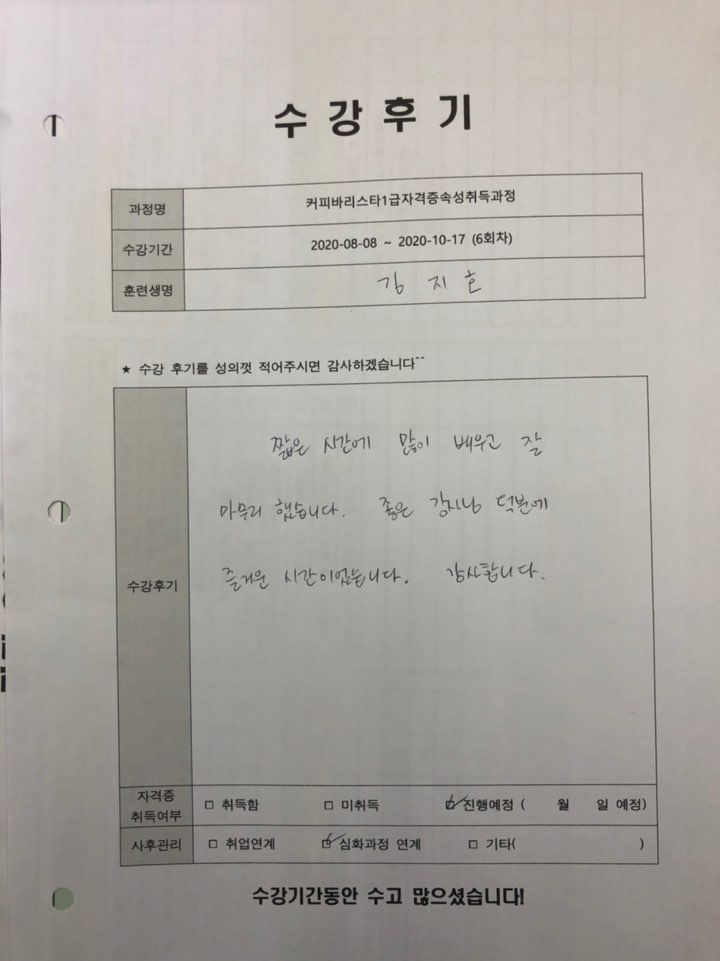 수강후기
과정명 커피바리스타1급자격증속성취득과정
수강기간 2020-08-08 ~ 2020-10-17 (6회차)
훈련생명 김지호
★ 수강 후기를 성의껏 적어주시면 감사하겠습니다^^
짧은 시간에 많이 배우고 잘
마무리 했습니다. 좋은 강사님 덕분에
수강후기 즐거운 시간이었습니다. 감사합니다.
자격증 취득여부 □ 취득함 □ 미취득 ☑ 진행예정 ( 월 일 예정)
사후관리 □ 취업연계 ☑ 심화과정 연계 □ 기타( )
수강기간동안 수고 많으셨습니다!